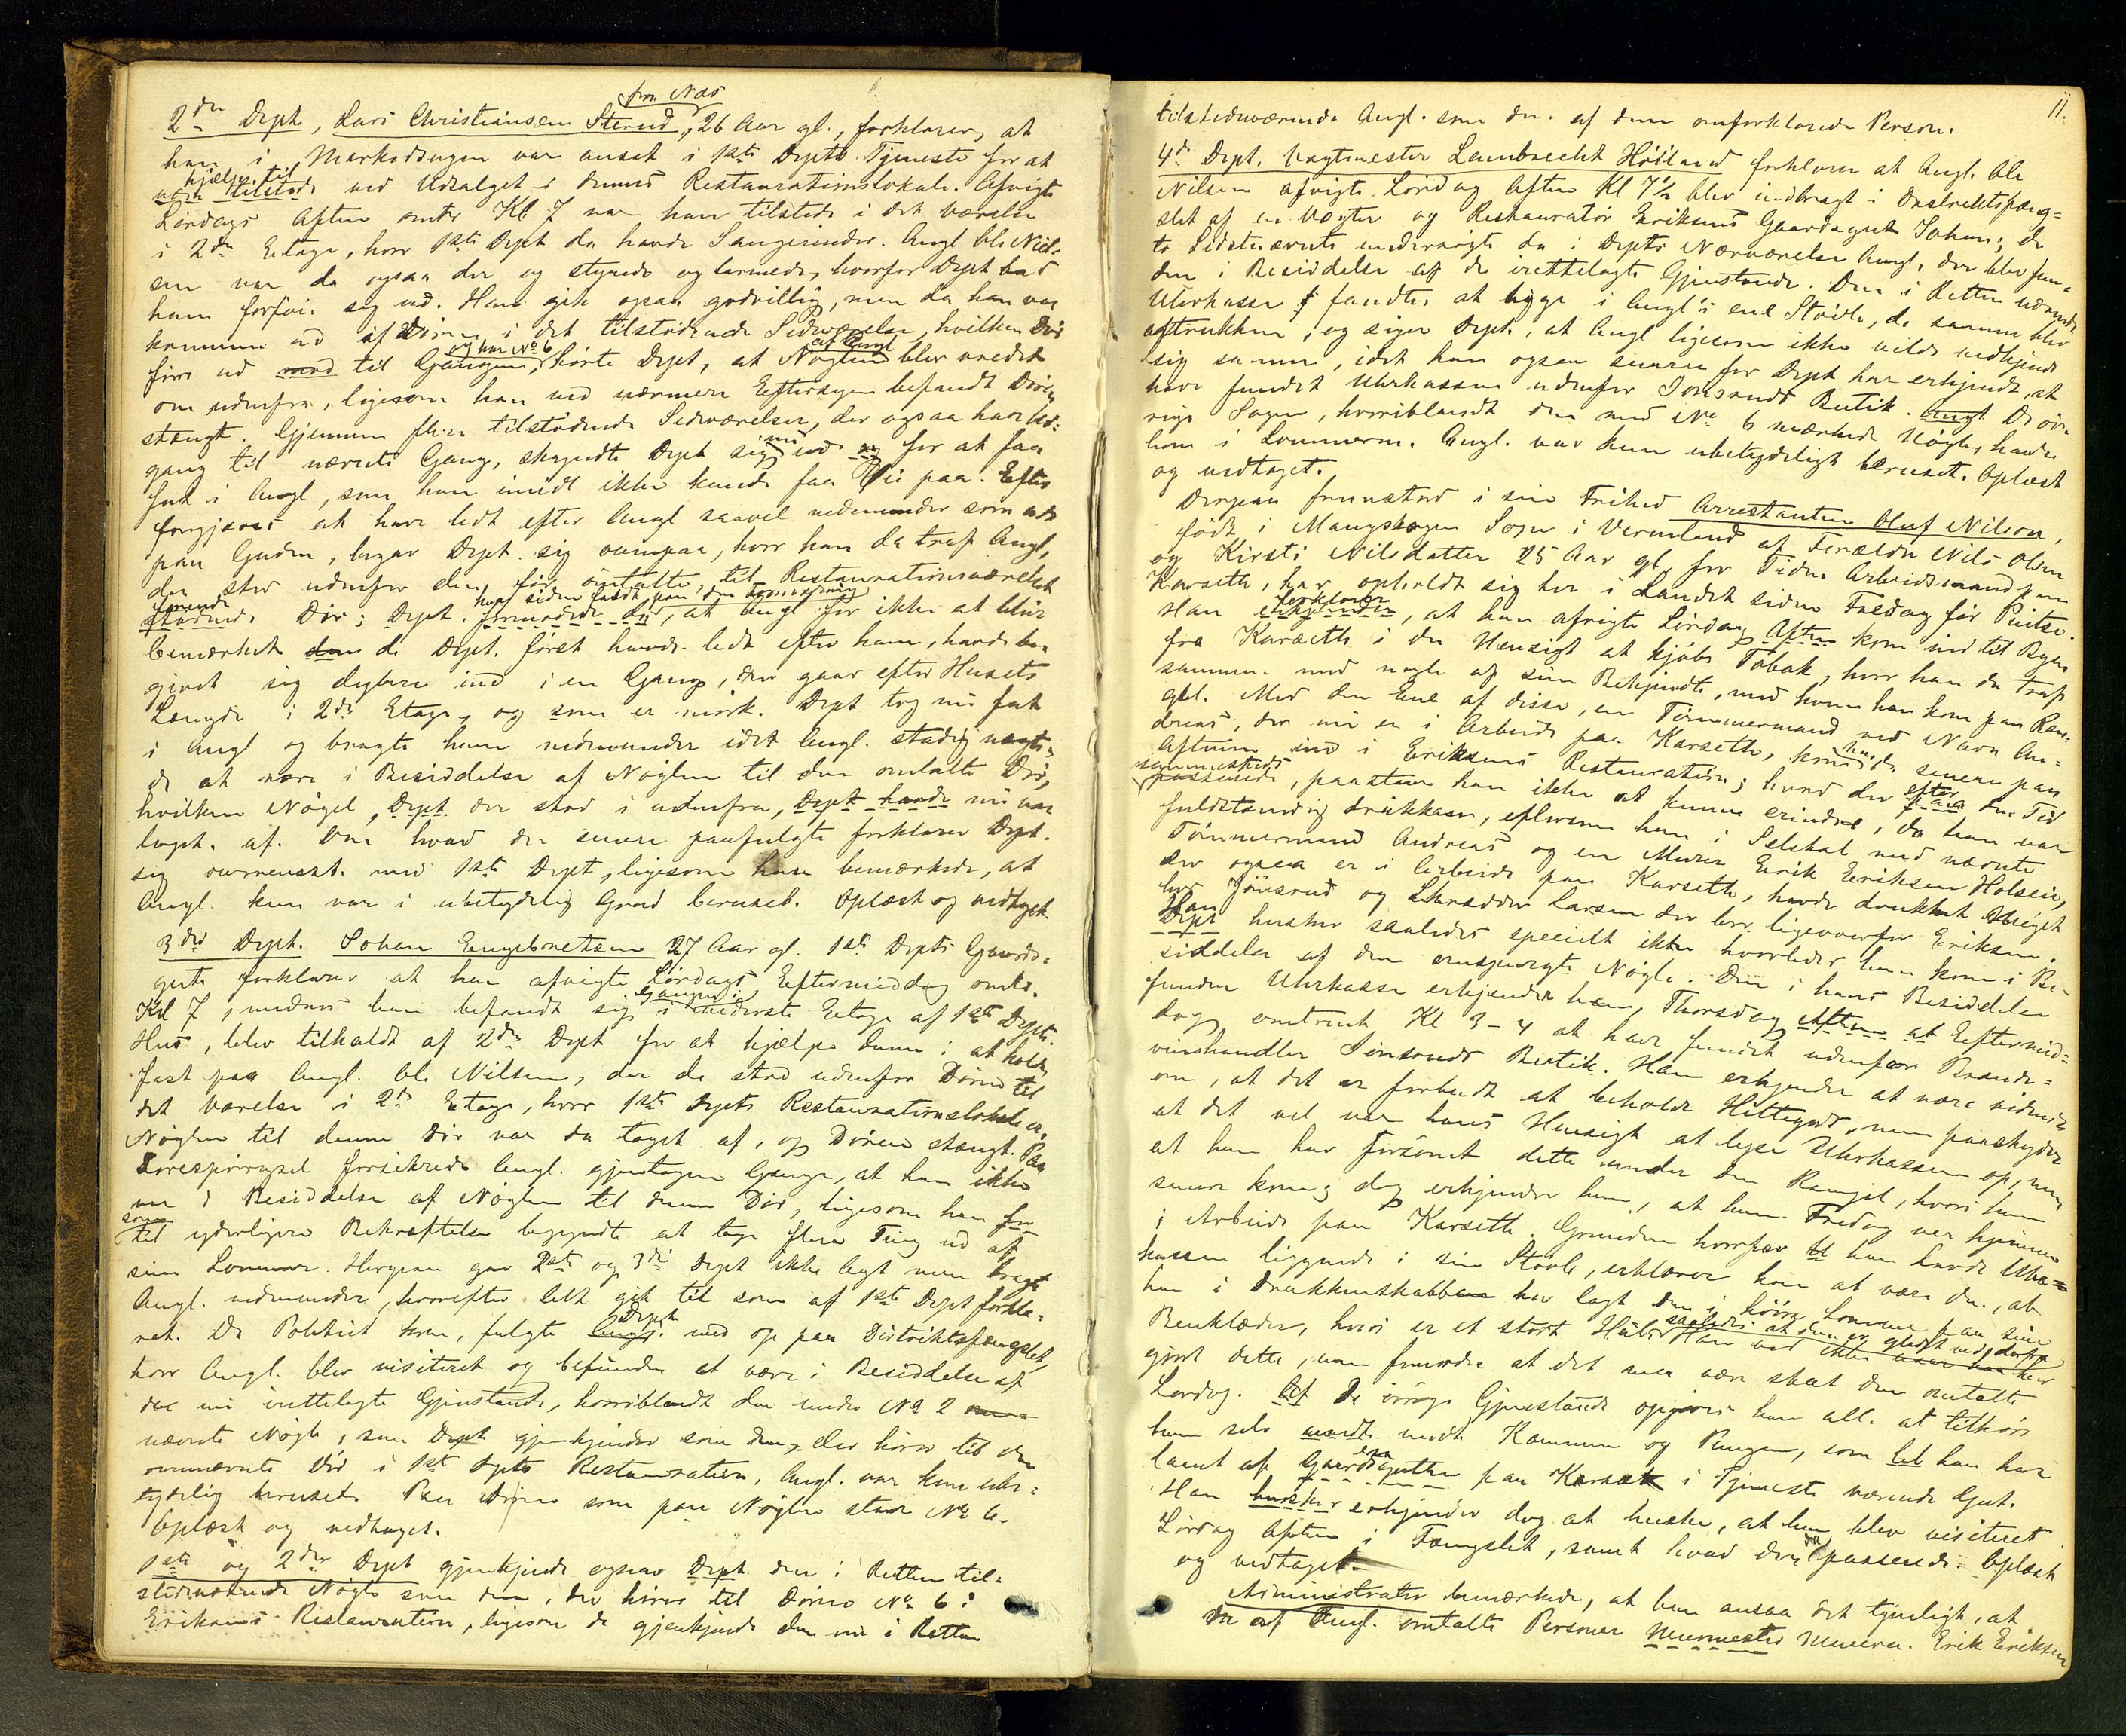 fra Næs
2den Dept, Lars Christiansen Sterud, 26 Aar gl., forklarer, at
han i Markedsugen var ansat i 1ste Depts Tjeneste for at
hjælpe til
være tilstede ved Udsalget i dennes Restaurationslokale. Afvigte
Lørdags Aften omtr Kl 7 var han tilstede i det Værelse
i 2den Etage, hvor 1ste Dept da havde Sangerinder. Angl Ole Niel-
sen var da ogsaa der og styrede og larmede, hvorfor Dept bad
ham forføie sig ud. Han gik ogsaa godvillig, men da han var
kommen ud af Døren i det tilstødende Sideværelse, hvilken Dør
og har No 6 af Angl
fører ud mod til Gangen, hørte Dept, at Nøglen blev vredet
om udenfra, ligesom han ved nærmere Eftersyn befandt Døren
stængt. Gjennem flere tilstødende Sideværelser, der ogsaa har Ud-
gang til nævnte Gang, skyndte Dept sig nu ud og for at faa
fat i Angl, som han imidl ikke kunde faa Øie paa. Efter
forgjæves at have ledt efter Angl saavel nedenunder som ude
paa Gaden, begav Dept. sig ovenpaa, hvor han da traf Angl,
der stod udenfor den før omtalte, til Restaurationsværelset
førende hvor siden faldt paa den Formening
stødende Dør; Dept. formodede da, at Angl for ikke at blive
bemærket den da Dept. først havde ledt efter ham, havde be-
givet sig dybere ind i en Gang, der gaar efter Husets
Længde i 2den Etage, og som er mørk. Dept tog nu fat
i Angl og bragte ham nedenunder idet Angl. stadig nægte-
de at være i Besiddelse af Nøglen til den omtalte Dør,
hvilken Nøgel, Dept. der stod i udenfra, Dept havde nu var
taget af. Om hvad der senere paafulgte forklarer Dept.
sig overensst. med 1ste Dept, ligesom han bemærkede, at
Angl. kun var i ubetydelig Grad beruset. Oplæst og vedtaget.
3die Dept. Johan Engebretsen 27 Aar gl. 1ste Depts Gaards-
gut forklarer at han afvigte Lørdags Eftermiddag omtr.
Gangen i
Kl 7, medens han befandt sig i nederste Etage af 1ste Depts
Hus, blev tilkaldt af 2den Dept for at hjælpe denne i at holde
fast paa Angl. Ole Nilsen, der da stod udenfor Døren til
det Værelse i 2den Etage, hvor 1ste Depts Restaurationslokale er.
Nøglen til denne Dør var da taget af, og Døren stængt. Paa
Forespørgsel forsikrede Angl. gjentagne Gange, at han ikke
var i Besiddelse af Nøglen til denne Dør, ligesom han for
som
til yderligere Bekræftelse begyndte at tage flere Ting ud af
sine Lommer. Herpaa gav 2den og 3die Dept ikke Agt men bragte
Angl. nedenunder, hvorefter Alt gik til som af 1ste Dept forkla-
Dept
ret. Da Politiet kom, fulgte Angl. med op paa Distriktsfængslet,
hvor Angl. blev visiteret og befundet at være i Besiddelse af
de nu irettelagte Gjenstande, hvoriblandt den under No 2
nævnte Nøgle, som Dept gjenkjender som den, der hører til den
ovennævnte Dør i 1ste Depts Restauration. Angl. var kun ube-
tydelig beruset. Paa Døren som paa Nøglen stod No 6.
Oplæst og vedtaget.
1ste og 2den Dept gjenkjende ogsaa Dept. den i Retten til-
stedeværende Nøgle som den, der hører til Døren No 6 i
Eriksens Restauration, ligesom de gjenkjende den nu i Retten
11.
tilstedeværende Angl. som den af dem omforklarede Person.
4de Dept. Vagtmester Lambrecht Hölland forklarer at Angl. Ole
Nilsen afvigte Lørdag Aften Kl 7½ blev indbragt i Distriktsfæng-
slet af en Vægter og Restauratør Eriksens Gaardsgut Johan; den-
te Sidstnævnte undersøgte da i Depts Nærværelse Angl., der blev fun-
den i Besiddelse af de irettelagte Gjenstande. Den i Retten værende
Uhrkasse fandtes at ligge i Angl's ene Støvle, da samme blev
aftrukken, og siger Dept., at Angl ligesom ikke vilde vedkjende
sig samme, idet han ogsaa senere for Dept har erkjendt, at
have fundet Uhrkassen udenfor Jonsruds Butik. Angl De øv-
rige Sager, hvoriblandt den med No 6 mærkede Nøgle, havde
han i Lommerne. Angl. var kun ubetydeligt beruset. Oplæst
og vedtaget.
Derpaa fremstod i sin Frihed Arrestanten Oluf Nilson,
født i Mangskogen Sogn i Vermland af Forældre Nils Olsen
og Kirsti Nilsdatter 25 Aar gl., for Tiden Arbeidsmand paa
Karseth, har opholdt sig her i Landet siden Fredag før Pintse.
forklarer
Han erkjender, at han afvigte Lørdag Aften kom ind til Byen
fra Karseth i den Hensigt at kjøbe Tobak, hvor han da traf
sammen med nogle af sine Bekjendte, med hvem han kom paa Ran-
gel. Med den Ene af disse, en Tømmermand ved Navn An-
dreas, der nu er i Arbeide paa Karseth, kom han da senere paa
Aftenen ind i Eriksens Restauration; hvad der efter den Tid
sammesteds
passerede, paastaar han ikke at kunne erindre, da han var
fuldstændig drukken, eftersom han i Selskab med nævnte
Tømmermand Andreas og en Murer Erik Eriksen Holseie,
der ogsaa er i Arbeide paa Karseth, havde drukket Meget
hos Jönsrud og Skrædder Larsen der bor ligeoverfor Eriksen.
Han
Dept husker saaledes specielt ikke hvorledes han kom i Be-
siddelse af den omspurgte Nøgle. Den i hans Besiddelse
fundne Uhrkasse erkjender han, Thorsdag Aften at Eftermid-
dag omtrent Kl 3-4 at have fundet udenfor Brænde-
vinshandler Jönsruds Butik. Han erkjender at være vidende
om, at det er forbudt at beholde Hittegods, men paaskyder
at det vel var hans Hensigt at lyse Uhrkassen op, men
at han har forsømt dette under den Rangel, hvori han
senere kom; dog erkjender han, at han Fredag var hjemme
i Arbeide paa Karseth. Grunden hvorfor han havde Uhr-
kassen liggende i sin Støvle, erklærer han at være den, at
han i Drukkenskabben har lagt den i høire Lomme paa sine
saaledes at den er gledet ned derfra
Benklæder, hvori er et stort Hul. Han ved ikke naar han har
gjort dette, men formoder at det maa være skeet den omtalte
Lørdag. Af De øvrige Gjenstande opgives han alle at tilhøre
ham selv undt. medt. Kammen og Pungen, som han har
laant af Gaardsgutten paa Karseth i Tjeneste værende Gut.
Han husker erkjender dog at huske, at han blev visiteret
Lørdag Aften i Fængslet, samt hvad der passerede. Oplæst
og vedtaget.
Administrator bemærkede, at han ansaa det tjenligt, at
de af Angl. omtalte Personer Murmester Murer Erik Eriksen